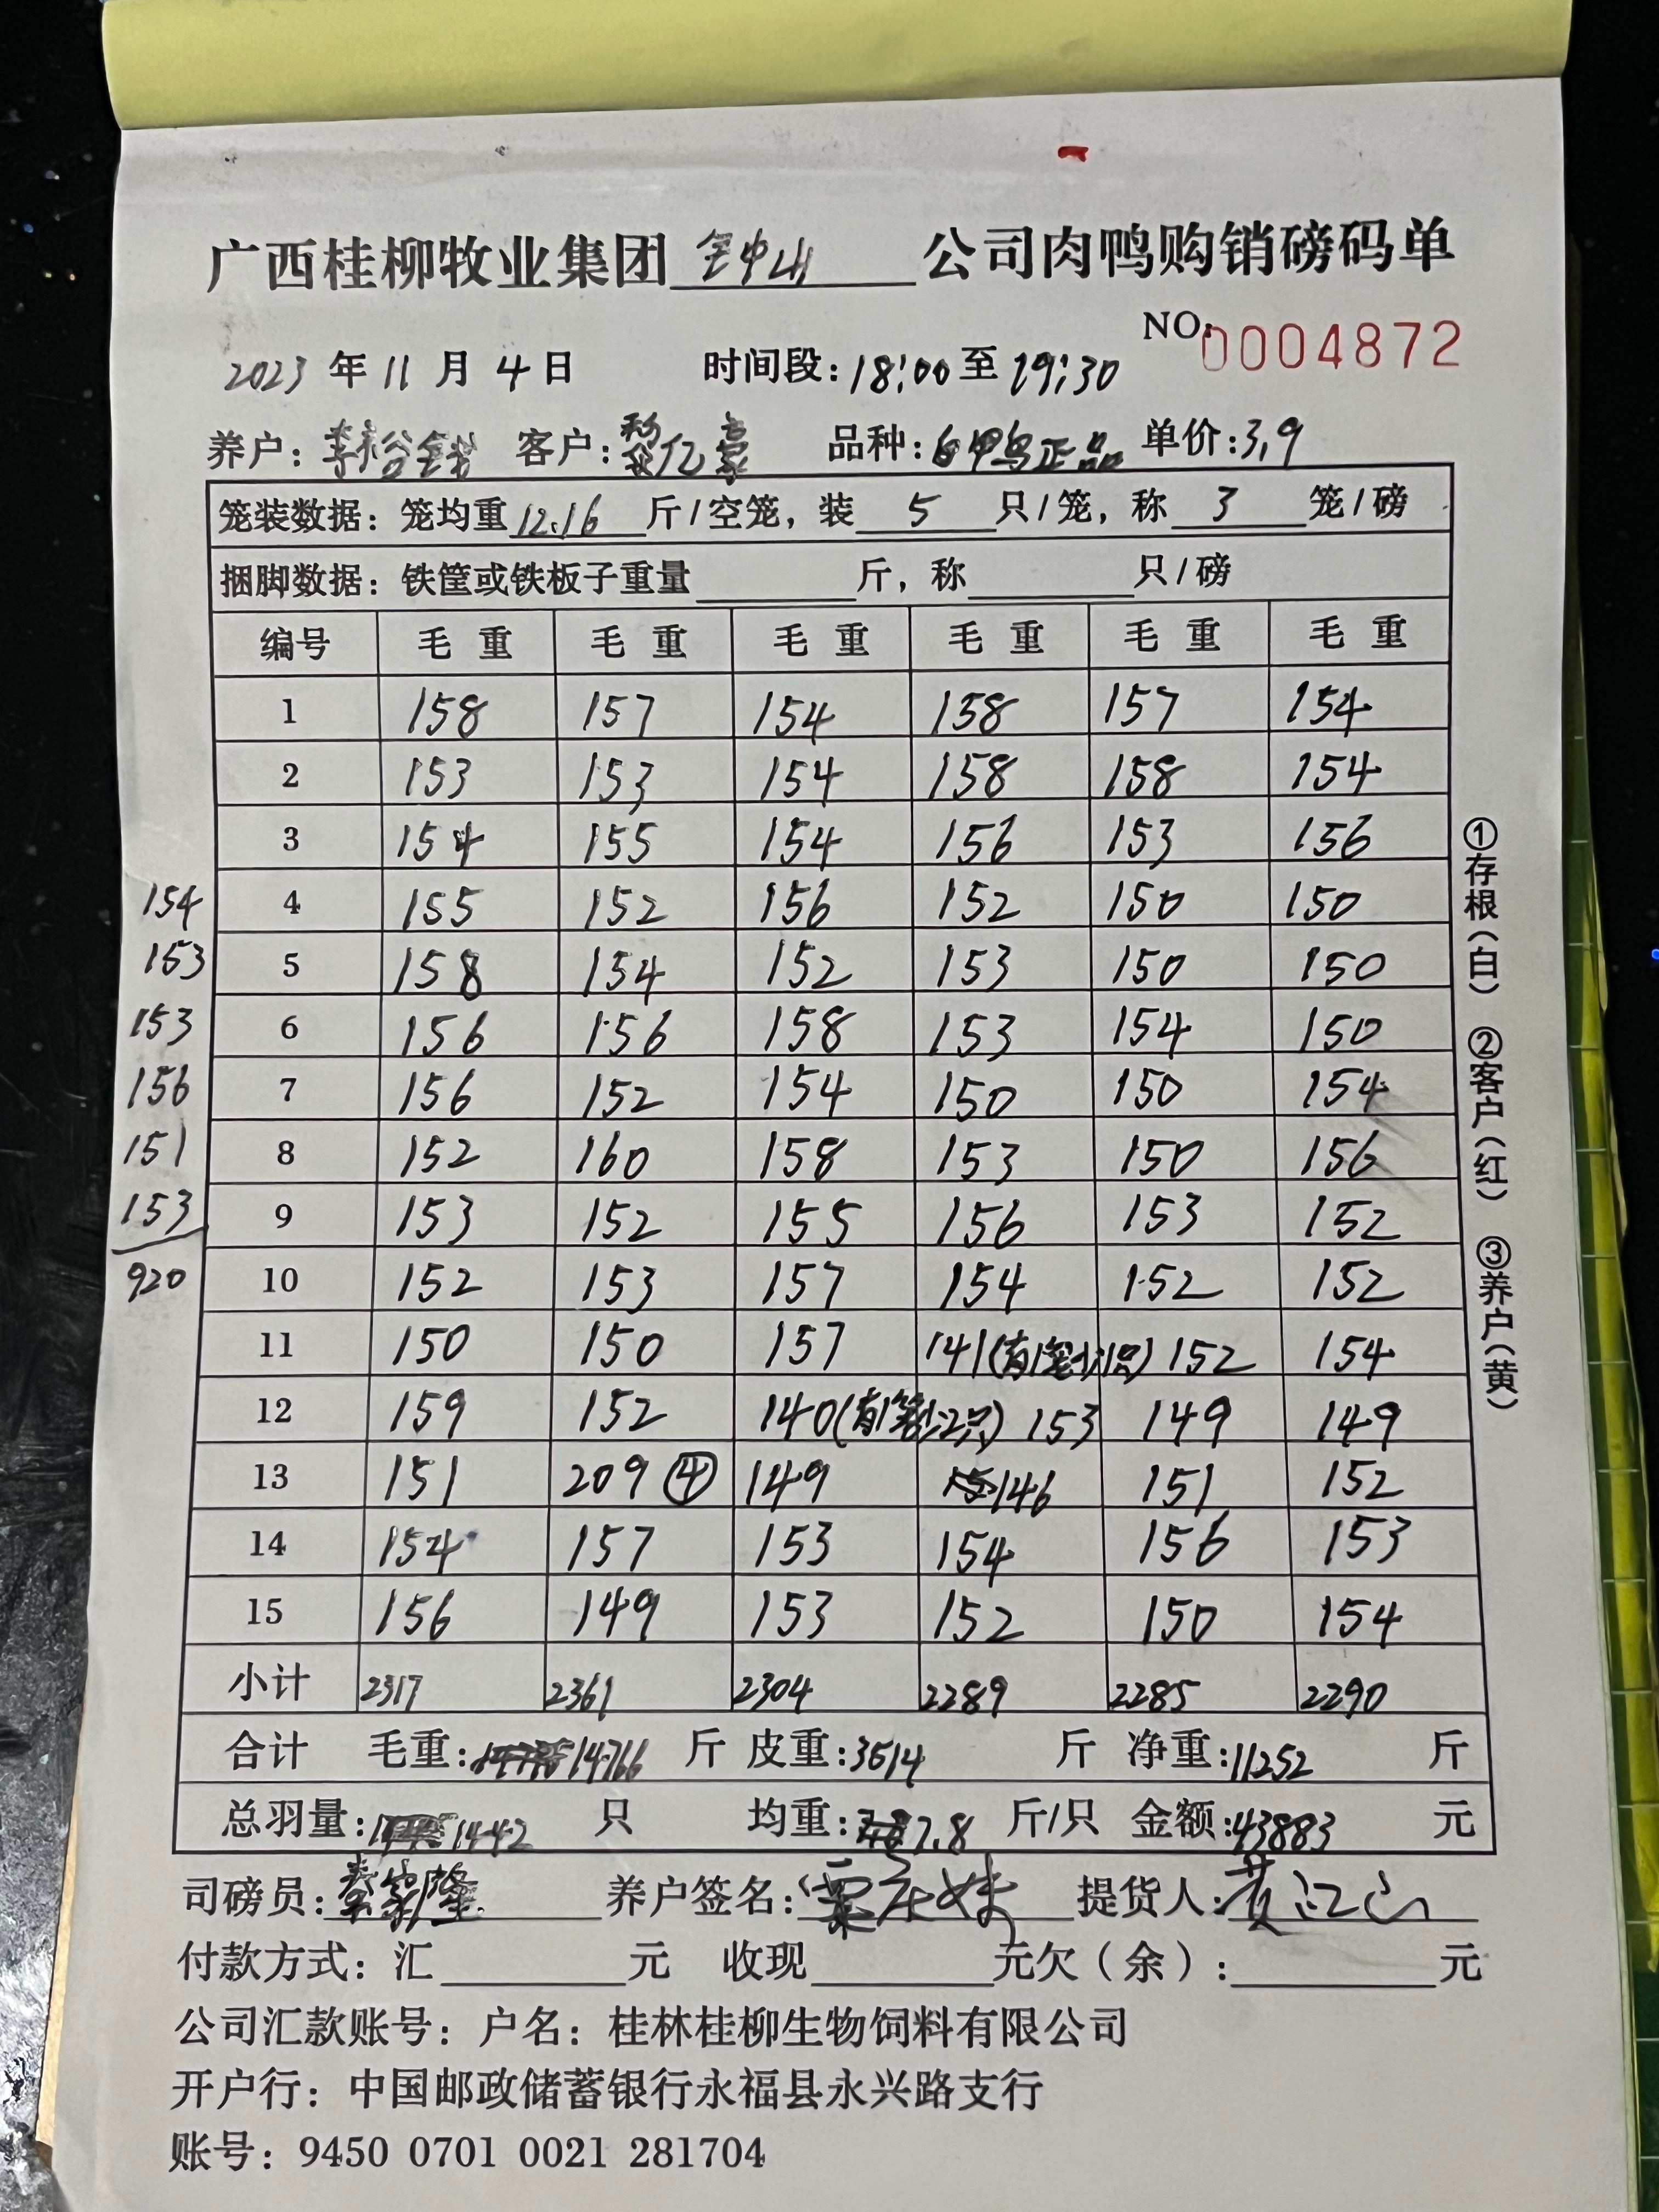 广西桂柳牧业集团 钟山 公司肉鸭购销磅码单
NO:0004872
2023 年 11 月 4 日 时间段:18:00 至 19:30
养户: 李裕 客户: 黎亿豪 品种: 白鸭正品 单价:3.9
笼装数据: 笼均重 12.16 斤/空笼, 装 5 只/笼, 称 3 笼/磅
捆脚数据: 铁筐或铁板子重量 斤, 称 只/磅
编号 毛重 毛重 毛重 毛重 毛重 毛重
1 158 157 154 158 157 154
2 153 153 154 158 158 154
3 154 155 154 156 153 156
154 4 155 152 156 152 150 150
153 5 158 154 152 153 150 150
153 6 156 156 158 153 154 150
156 7 156 152 154 150 150 154
151 8 152 160 158 153 150 156
153 9 153 152 155 156 153 152
920 10 152 153 157 154 152 152
11 150 150 157 141(有1笼少1只) 152 154
12 159 152 140(有1笼少2只) 153 149 149
13 151 209 ④ 149 146 151 152
14 154 157 153 154 156 153
15 156 149 153 152 150 154
小计 2317 2361 2304 2289 2285 2290
合计 毛重: 14766 斤 皮重:3514 斤 净重:11252 斤
总羽量: 1442 只 均重: 7.8 斤/只 金额:43883 元
司磅员: 秦家隆 养户签名: 提货人: 黄江山
付款方式: 汇 元 收现 元欠(余): 元
公司汇款账号: 户名: 桂林桂柳生物饲料有限公司
开户行: 中国邮政储蓄银行永福县永兴路支行
账号: 9450 0701 0021 281704
①存根(白) ②客户(红) ③养户(黄)